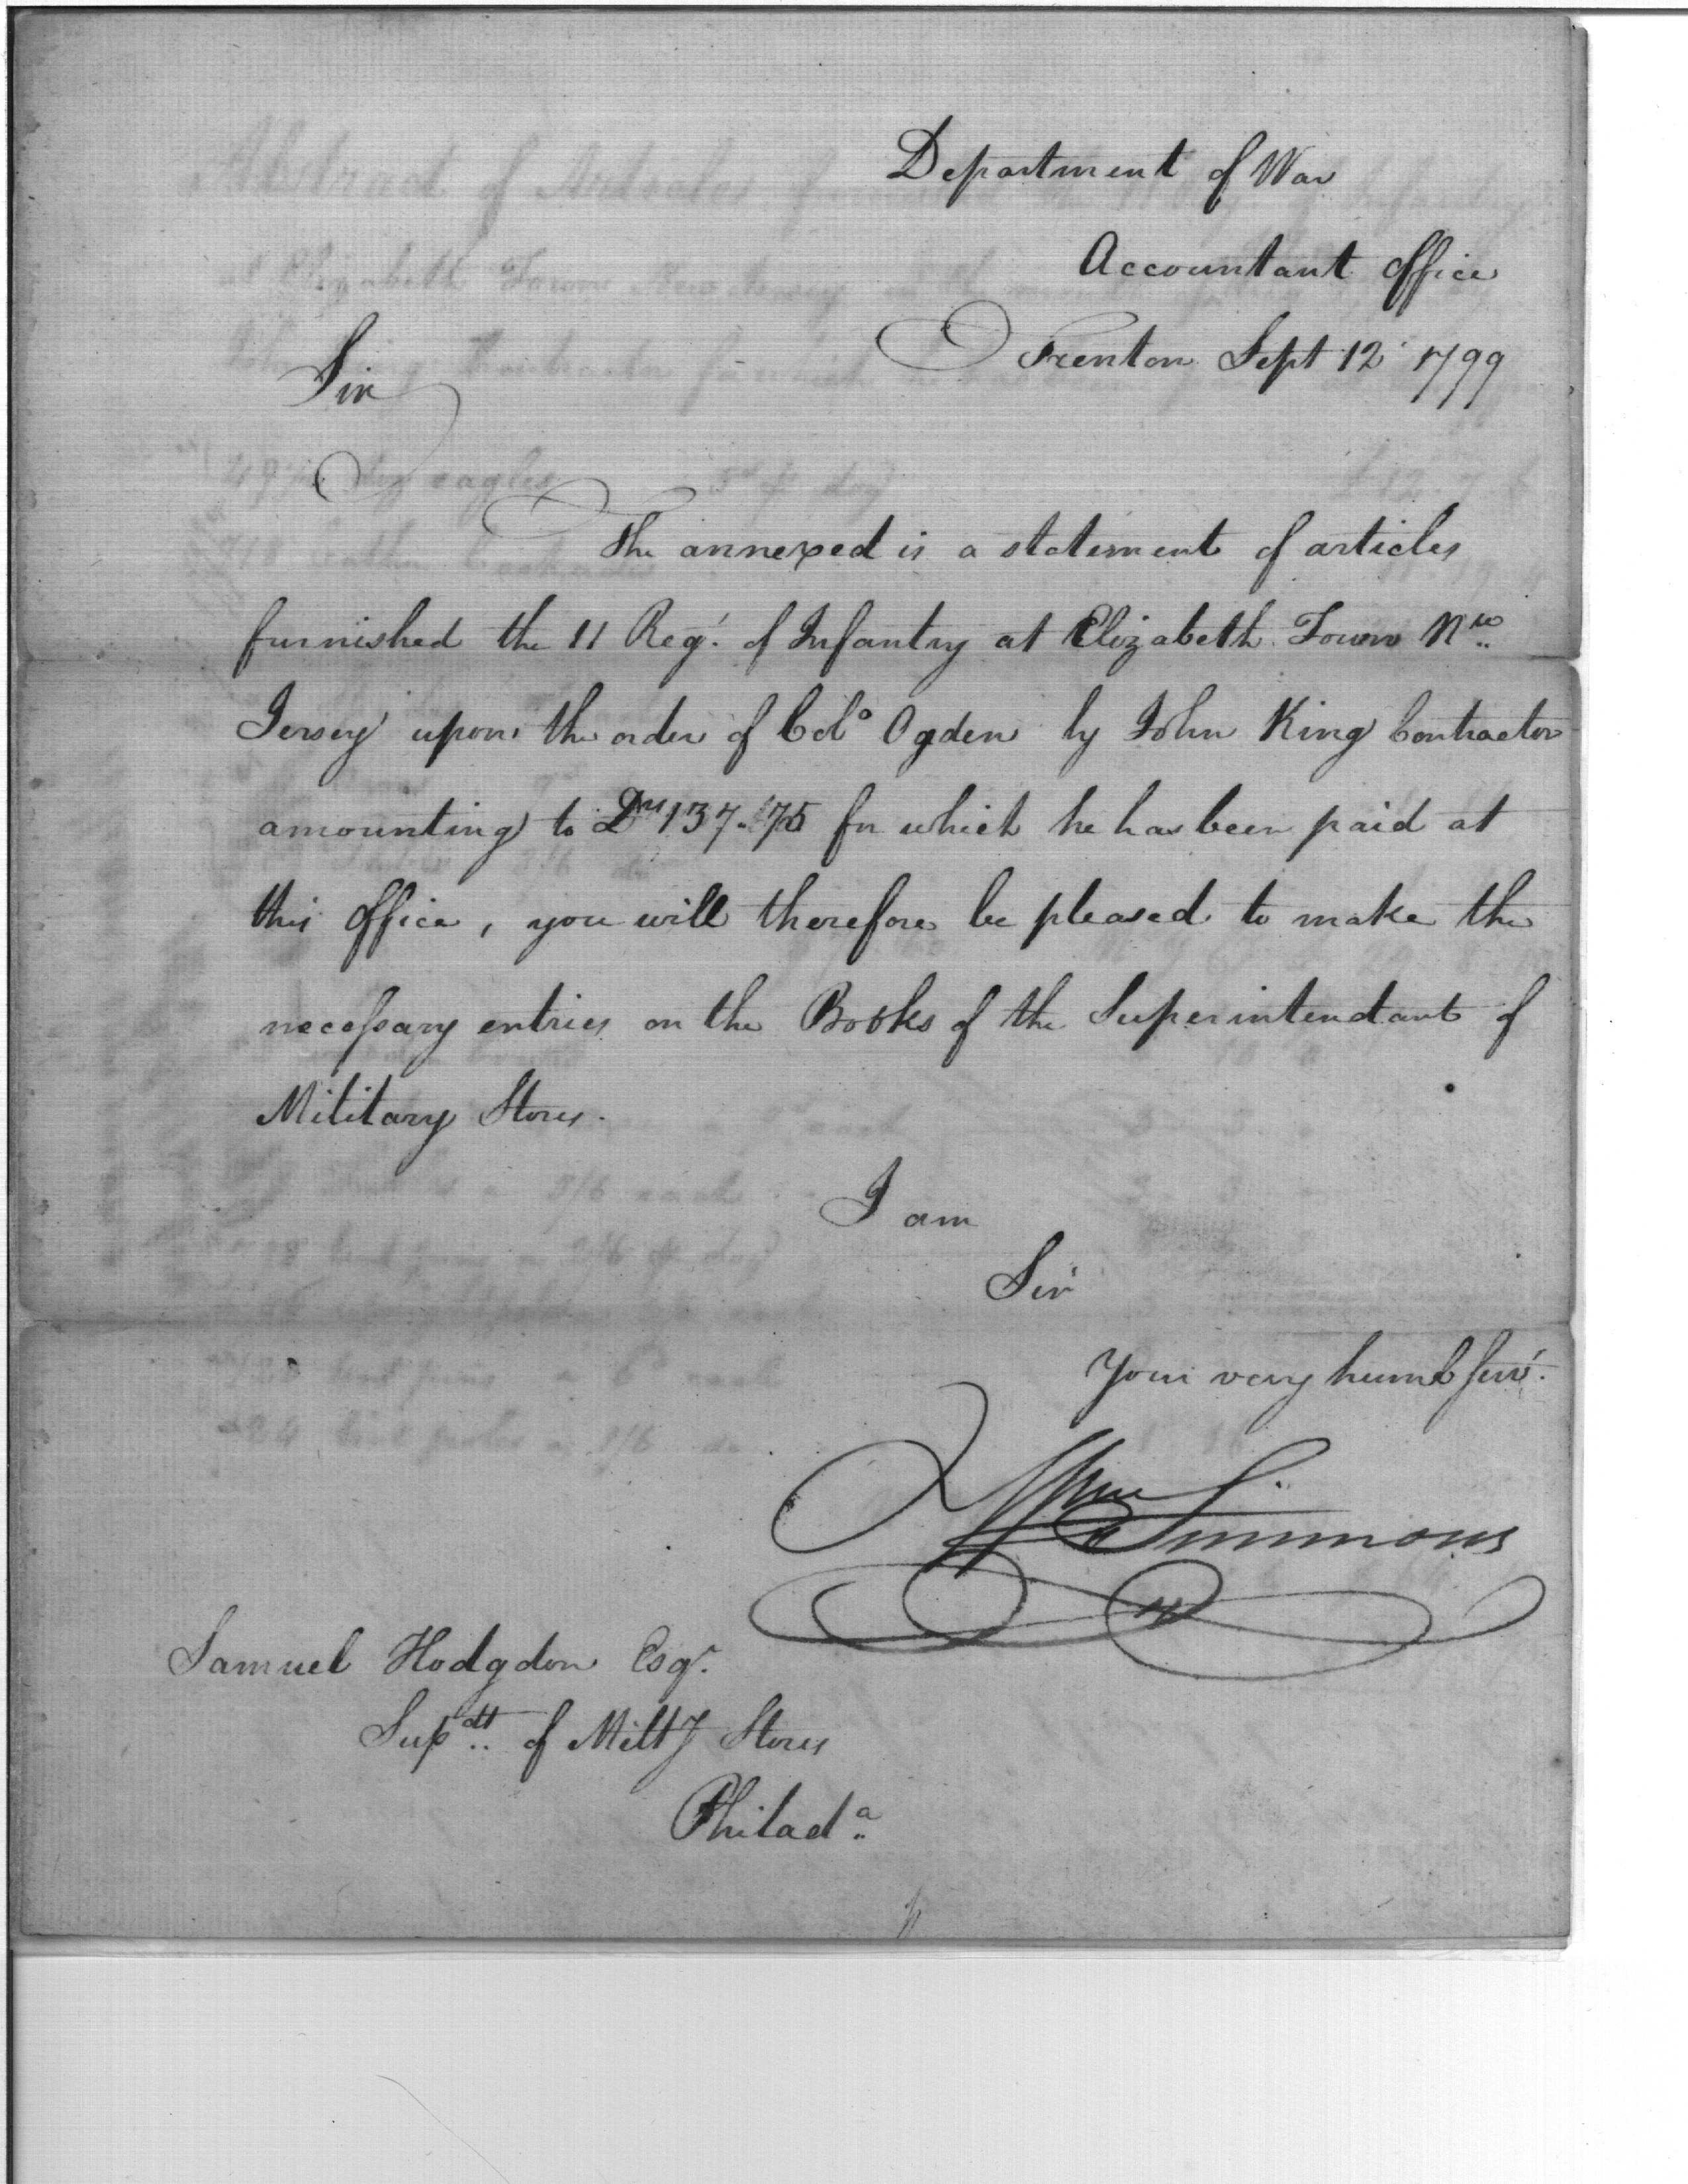 Department of War
Accountant Office
Trenton Sept 12 1799
Sir
The annexed is a statement of articles
furnished the 11 Regt. of Infantry at Elizabeth Town Nw
Jersey upon the order of Colo Ogden by John King Contractor
amounting to Drs 137.75 for which he has been paid at
this office, you will therefore be pleased to make the
necessary entries on the Books of the Superintendant of
Military Stores.
I am
Sir
Your very humb servt.
Wm Simmons
Samuel Hodgdon Esqr.
Supdtt of Milty Stores
Philada